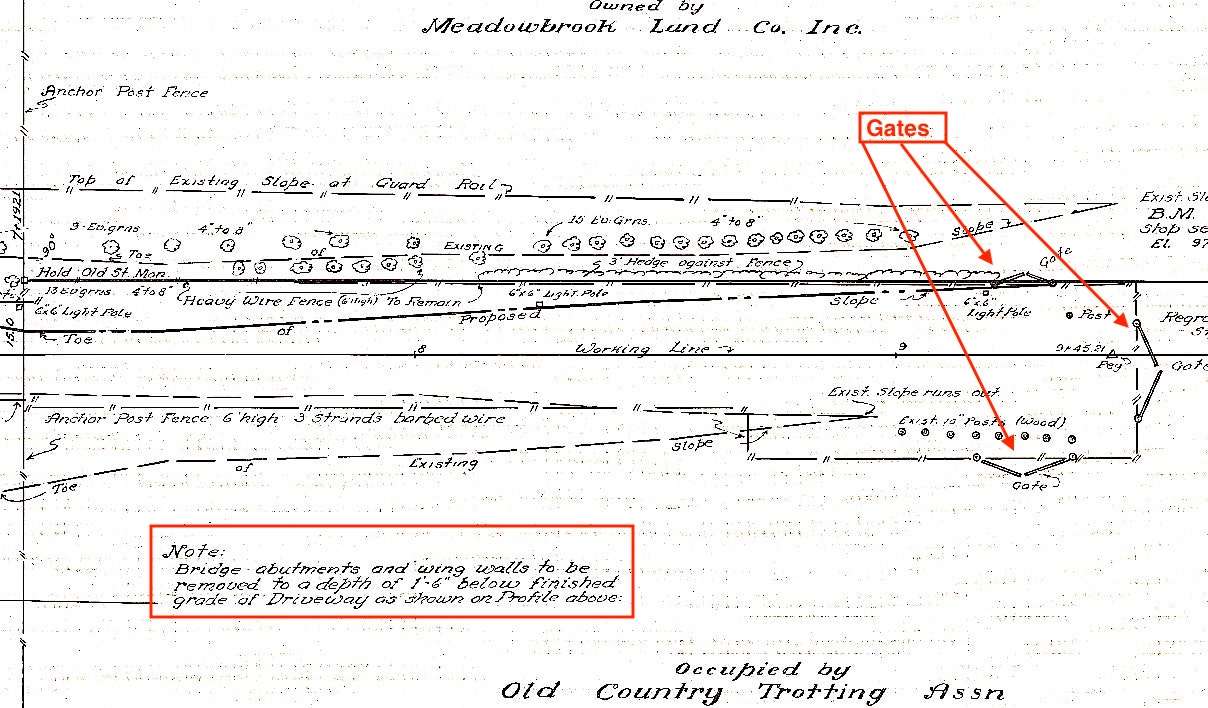 Owned by
Meadowbrook Land Co. Inc.
Anchor Post Fence
Gates
Top of Existing Slope at Guard Rail
7+1921
9 Ev.grns. 4" to 8"
15 Ev.Grns. 4" to 8"
Slope
Exist. Slo
B.M.
Stop se
El. 97
90°
Toe of EXISTING
3' Hedge against Fence
Gate
Hold Old St. Mon.
13 Ev.grns. 4" to 8"
Heavy Wire Fence (6' high) To Remain
6"x6" Light Pole
Slope
6"x6"
Light Pole
Post
Regra
6"x6" Light Pole
Proposed
of
Toe
15.10
8
Working Line
9
9+45.21
Peg
Gate
Exist. Slope runs out
Anchor Post Fence 6' high 3 Strands barbed wire
Exist. 15" Posts (Wood)
Slope
of Existing
Toe
Gate
Note:
Bridge abutments and wing walls to be
removed to a depth of 1'-6" below finished
grade of Driveway as shown on Profile above.
Occupied by
Old Country Trotting Assn